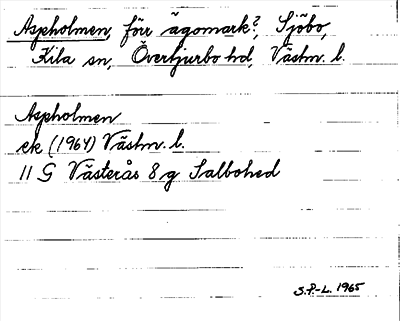 Aspholmen, förr ägomark?, Sjöbo,
Kila sn, Övertjurbo hd, Västm. l.
Aspholmen
ek (1964) Västm. l.
11 G Västerås 8 g Salbohed
S.P-L. 1965